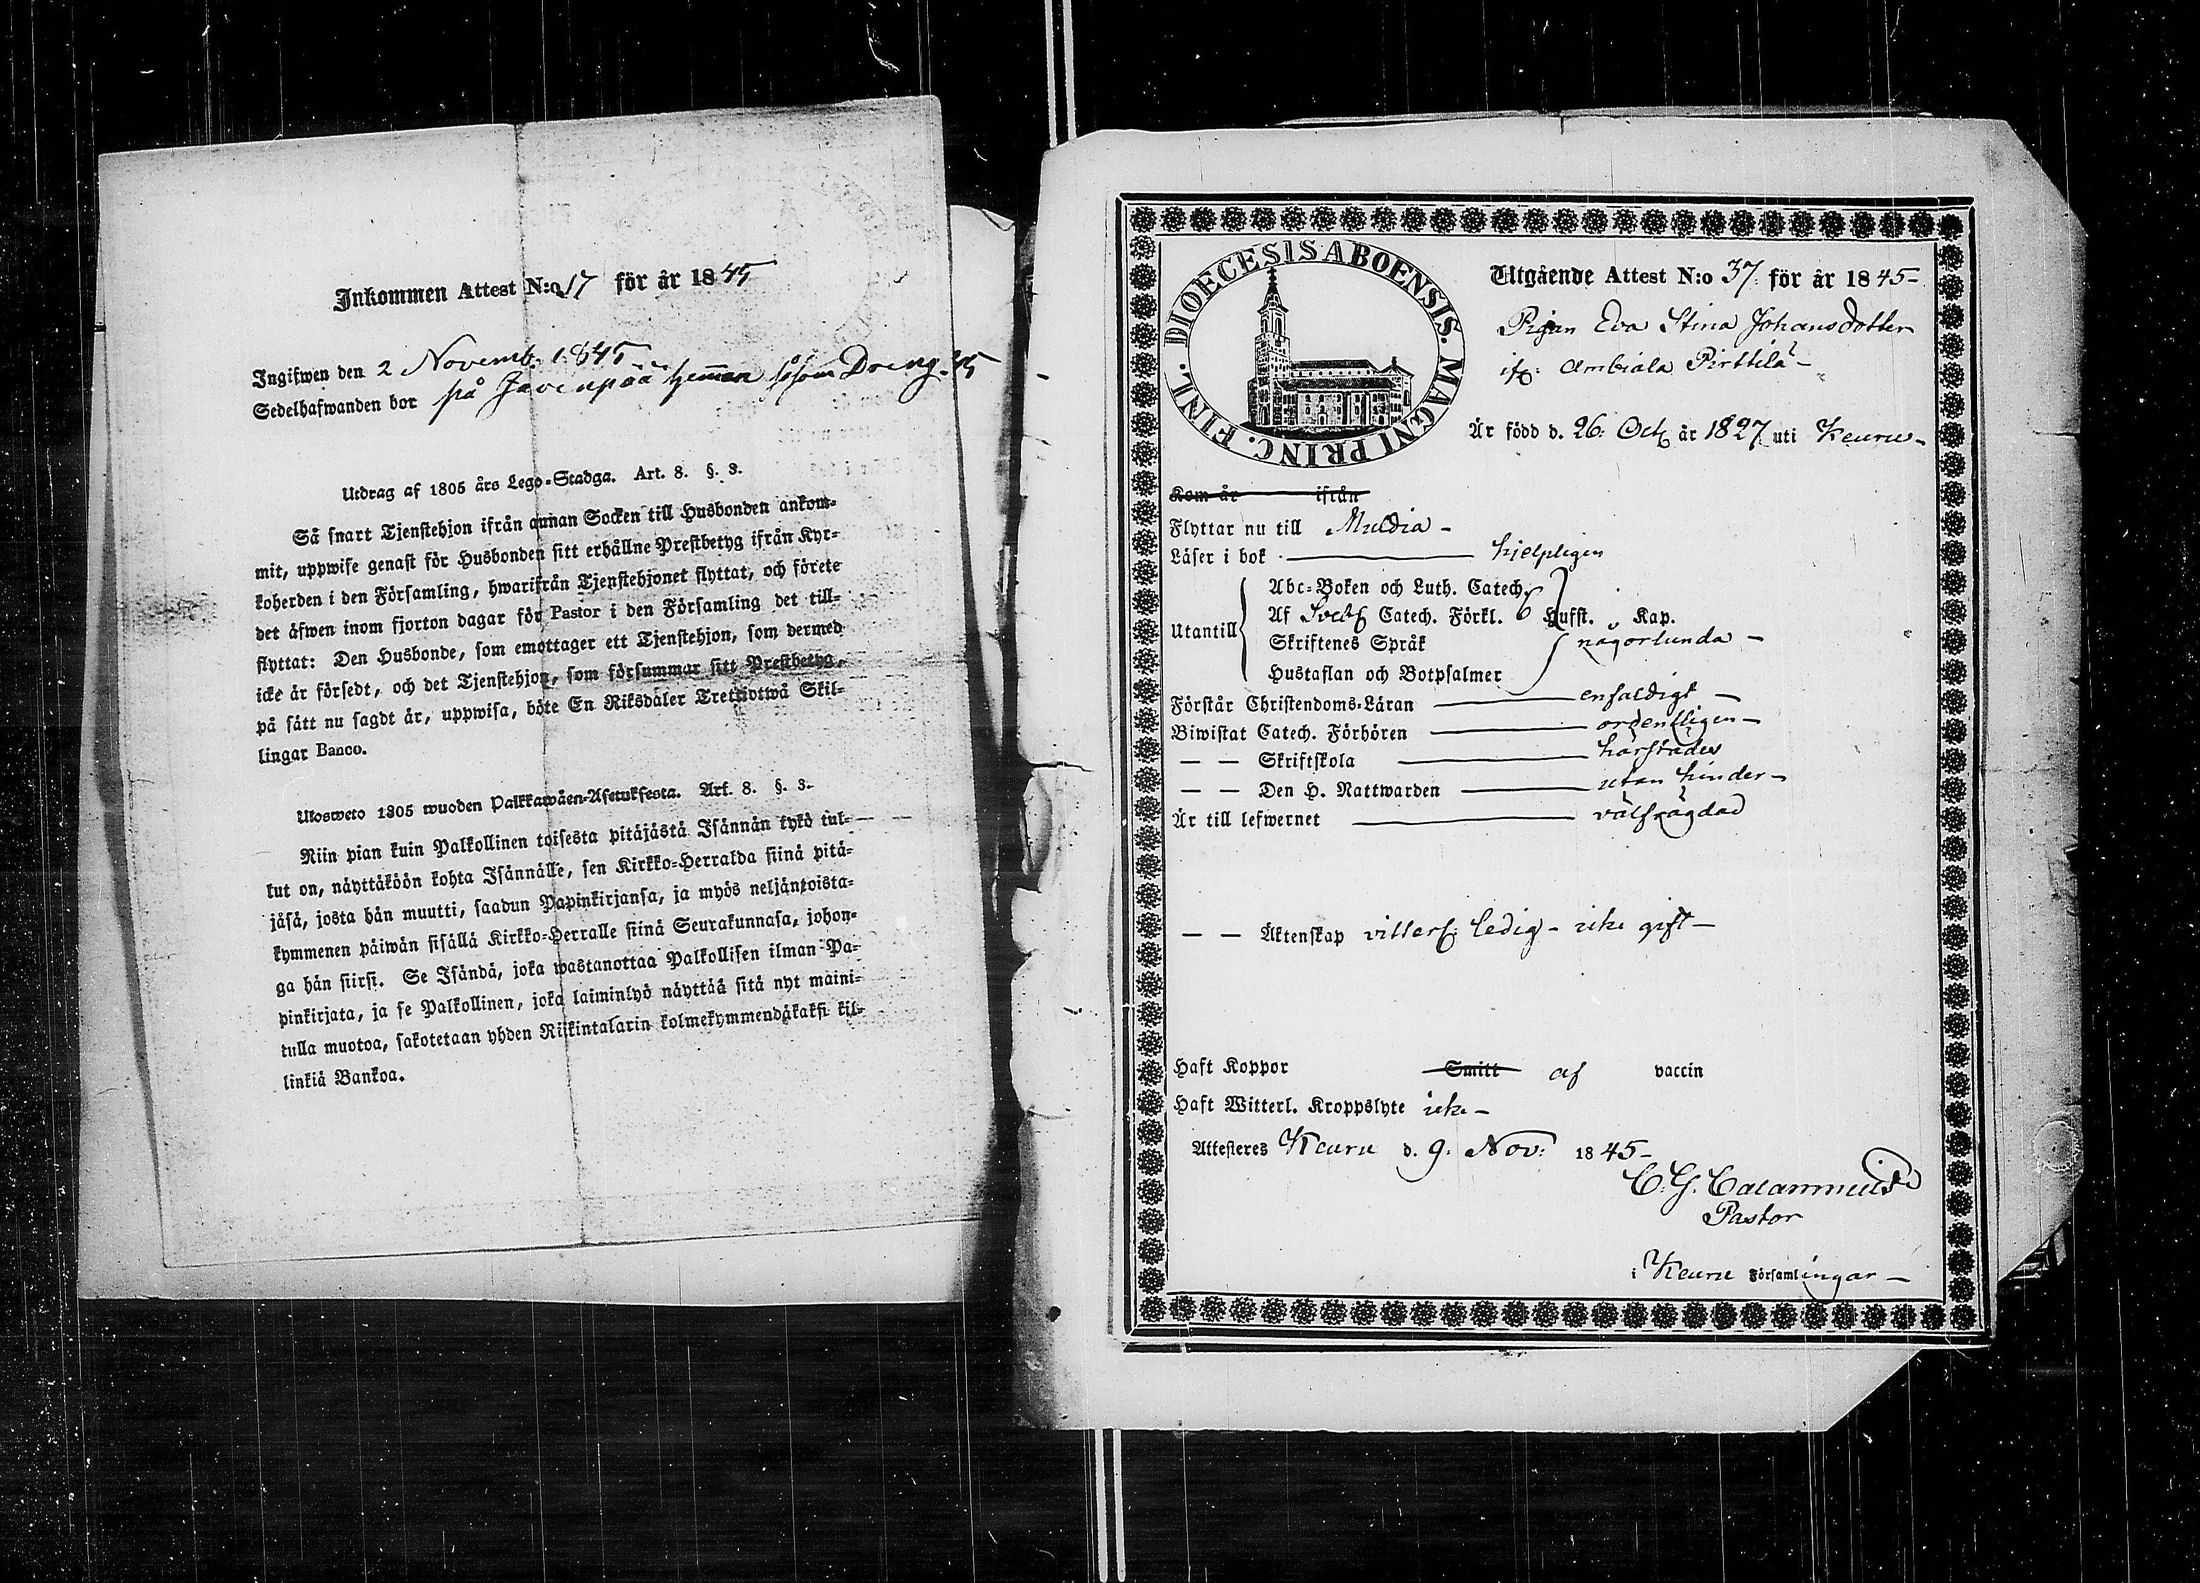 Inkommen Attest N:o 17 för år 1845
Ingifwen den 2 Novemb. 1845
Sedelhafwanden bor på Javenpää heman såsom Dreng.
Utdrag af 1805 års Lego-Stadga. Art. 8. §. 3.
Så snart Tjenstehjon ifrån annan Socken till Husbonden ankom-
mit, uppwise genast för Husbonden sitt erhållne Prestbetyg ifrån Kyr-
koherden i den Församling, hwarifrån Tjenstehjonet flyttat, och förete
det äfwen inom fjorton dagar för Pastor i den Församling det till-
flyttat: Den Husbonde, som emottager ett Tjenstehjon, som dermed
icke är försedt, och det Tjenstehjon, som försummar sitt Prestbetyg,
på sätt nu sagdt är, uppwisa, böte En Riksdaler Trettiotwå Skil-
lingar Banco.
Ulosweto 1805 wuoden Palkkawäen-Asetuksesta. Art. 8. §. 3.
Niin pian kuin Palkollinen toisesta pitäjästä Isännän tykö tul-
lut on, näyttäköön kohta Isännälle, sen Kirkko-Herralda siinä pitä-
jäsä, josta hän muutti, saadun Papinkirjansa, ja myös neljäntoista-
kymmenen päiwän sisällä Kirkko-Herralle siinä Seurakunnasa, johon-
ga hän siirsi. Se Isändä, joka wastanottaa Palkollisen ilman Pa-
pinkirjata, ja se Palkollinen, joka laiminlyö näyttää sitä nyt maini-
tulla muotoa, sakotetaan yhden Riikintalarin kolmekymmendäkaksi kil-
linkiä Bankoa.
DIOECESIS ABOENSIS. MAGNI PRINC. FINL.
Utgående Attest N:o 37 för år 1845-
Pigan Eva Stina Johansdotter
ifr: Ambiala Pirttilä -
Är född d. 26: Oct år 1827 uti Keuru-
Kom år ifrån
Flyttar nu till Muldia -
Läser i bok hjelpligen
Abc-Boken och Luth. Catech.
Af Catech. Förkl. 6 Hufst. Kap.
Utantill
Skriftenes Språk någorlunda -
Hustaflan och Botpsalmer
Förstår Christendoms-Läran enfaldigt -
Biwistat Catech. Förhören ordentligen -
— — Skriftskola härstädes
— — Den H. Nattwarden utan hinder -
Är till lefwernet välfrägdad
— — Äktenskap ledig - icke gift -
Haft Koppor Smitt af vaccin
Haft Witterl. Kroppslyte icke -
Attesteres Keuru d. 9. Nov: 1845-
C. G. Calamnius
Pastor
i Keuru Församlingar -